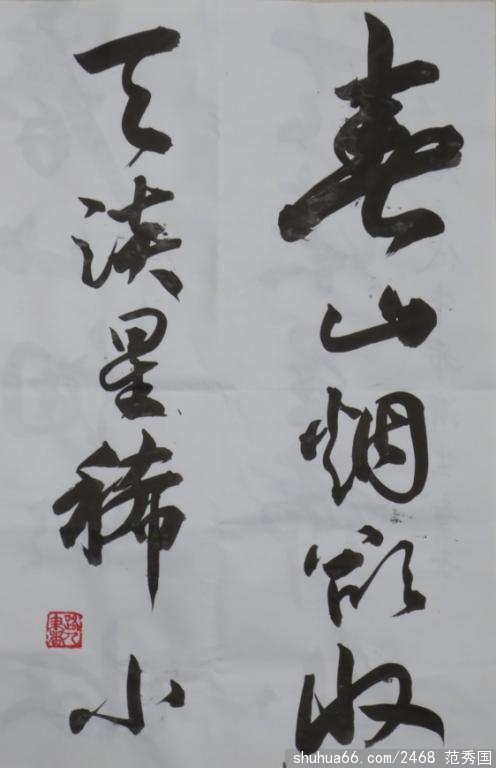 春山烟欲收
天淡星稀小
shuhua66.com/2468 范秀国